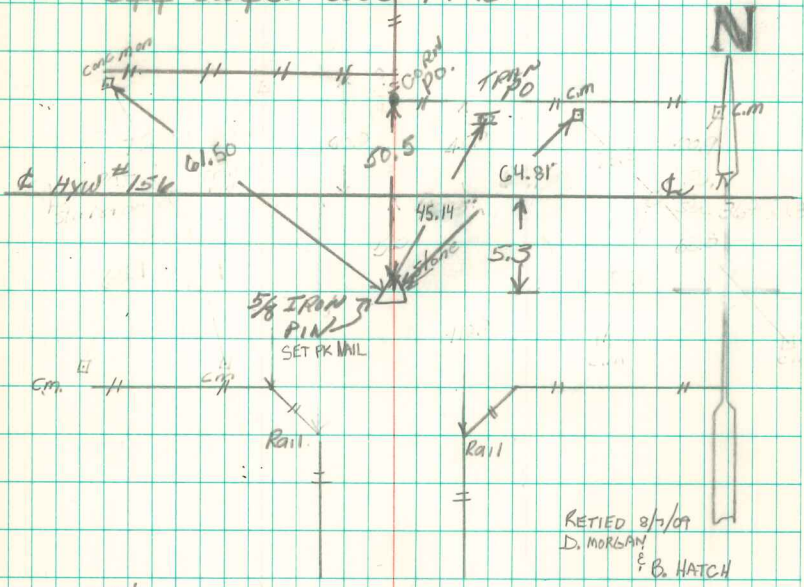 N
conc mon
CORN
PO.
TRAN
PO
C.M
C.M
61.50
50.5
64.81
℄ HYW #156
℄
45.14
5.3
stone
5/8 IRON
PIN
SET PK NAIL
C.M.
C.M
Rail
Rail
RETIED 8/7/09
D. MORGAN
& B. HATCH